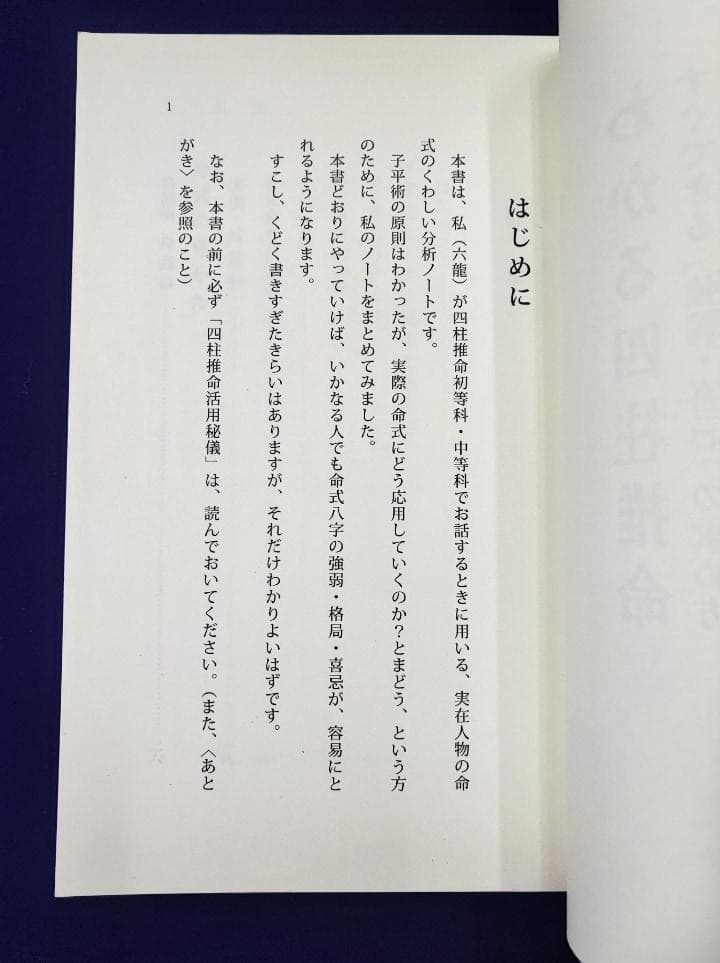 はじめに
本書は、私（六龍）が四柱推命初等科・中等科でお話するときに用いる、実在人物の命
式のくわしい分析ノートです。
子平術の原則はわかったが、実際の命式にどう応用していくのか？とまどう、という方
のために、私のノートをまとめてみました。
本書どおりにやっていけば、いかなる人でも命式八字の強弱・格局・喜忌が、容易にと
れるようになります。
すこし、くどく書きすぎたきらいはありますが、それだけわかりよいはずです。
なお、本書の前に必ず「四柱推命活用秘儀」は、読んでおいてください。（また、〈あと
がき〉を参照のこと）
1